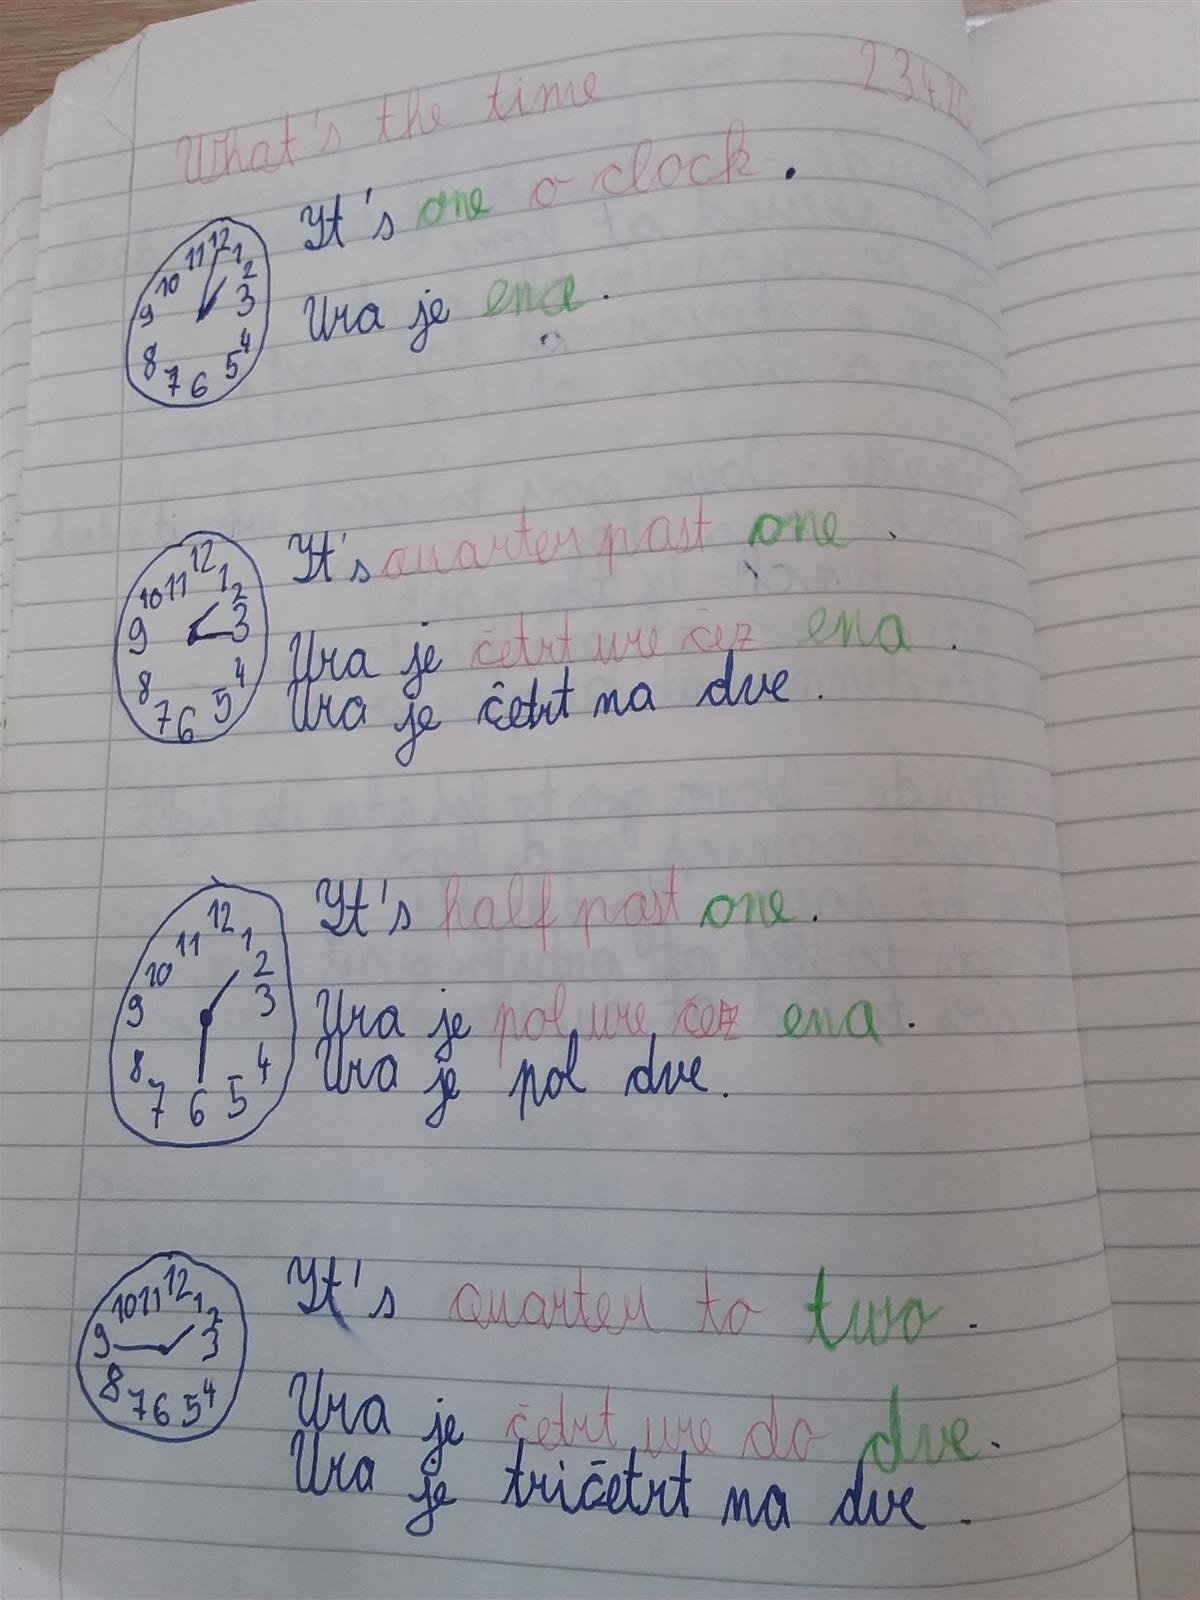 What's the time 23.4.20
It's one o clock.
12 1 2 3 4 5 6 7 8 9 10 11
Ura je ena.
It's quarter past one.
12 1 2 3 4 5 6 7 8 9 10 11
Ura je četrt ure čez ena.
Ura je četrt na dve.
It's half past one.
12 1 2 3 4 5 6 7 8 9 10 11
Ura je pol ure čez ena.
Ura je pol dve.
It's quarter to two.
12 1 2 3 4 5 6 7 8 9 10 11
Ura je četrt ure do dve.
Ura je tričetrt na dve.